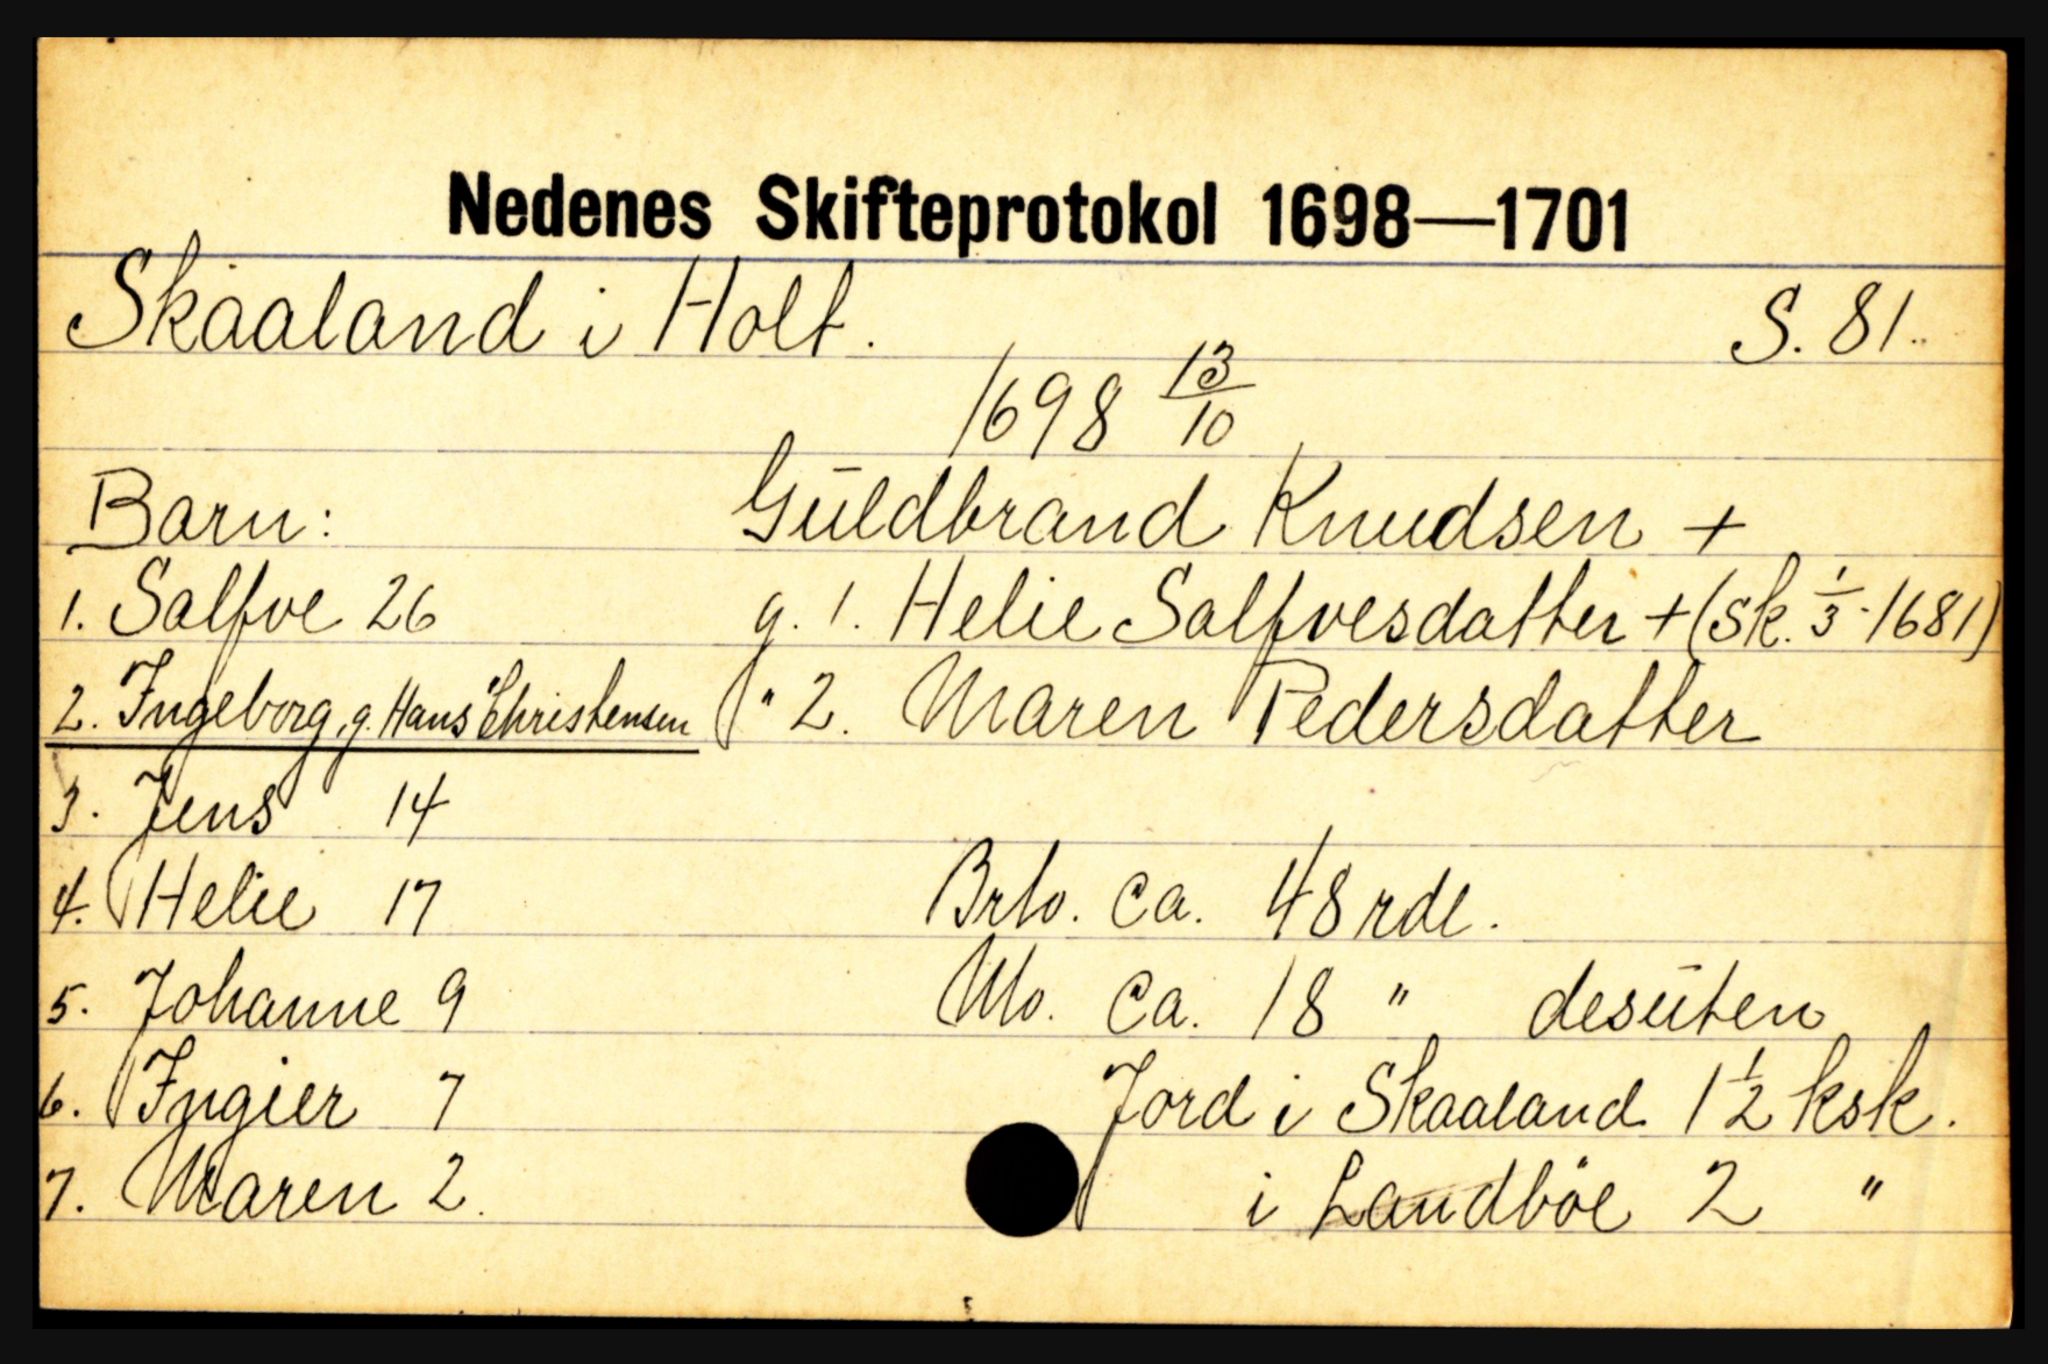 Nedenes Skifteprotokol 1698—1701
Skaaland i Holt. S. 81.
1698 13/10
Barn: Guldbrand Knudsen +
1. Salfve 26 g. 1. Helie Salfvesdatter + (sk. 1/3-1681)
2. Ingeborg, g. Hans Christensen " 2. Maren Pedersdatter
3. Jens 14
4. Helie 17 Brto. ca. 48 rdl.
5. Johanne 9 No. ca. 18 " desuten
6. Ingier 7 Jord i Skaaland 1 1/2 ksk.
7. Maren 2. i Landböe 2 "